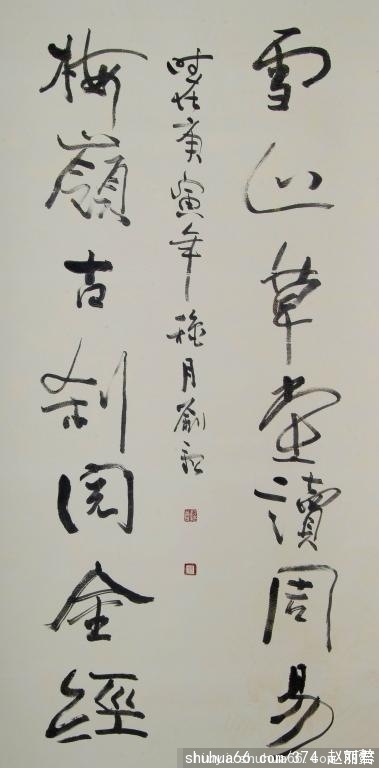 雪山草堂讀周易
梅嶺古刹閱金經
時在庚寅年穐月劉
shuhua66.com/374